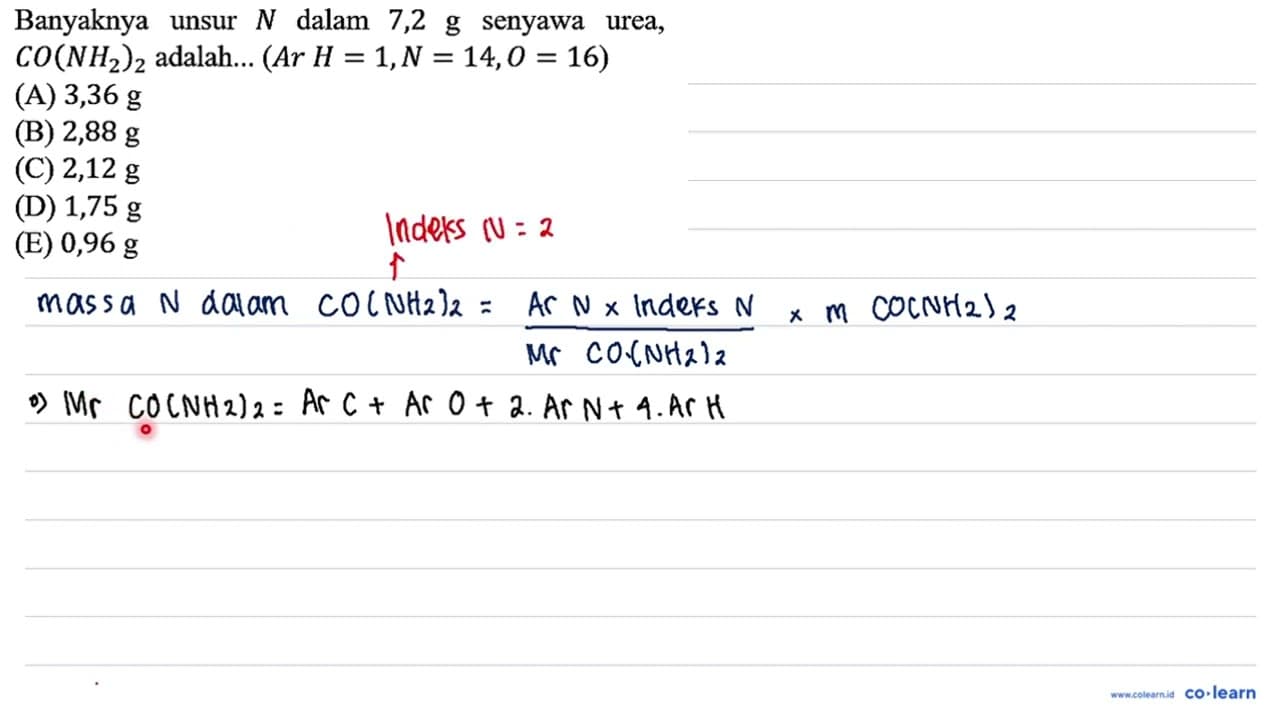 Banyaknya unsur N dalam 7,2 g senyawa urea,
CO(NH₂)₂ adalah... (Ar H = 1, N = 14, O = 16)
(A) 3,36 g
(B) 2,88 g
(C) 2,12 g
(D) 1,75 g
(E) 0,96 g
Indeks N = 2
↑
massa N dalam CO(NH2)2 = Ar N x Indeks N x m CO(NH2)2
Mr CO(NH2)2
•) Mr CO(NH2)2 = Ar C + Ar O + 2. Ar N + 4. Ar H
www.colearn.id co·learn